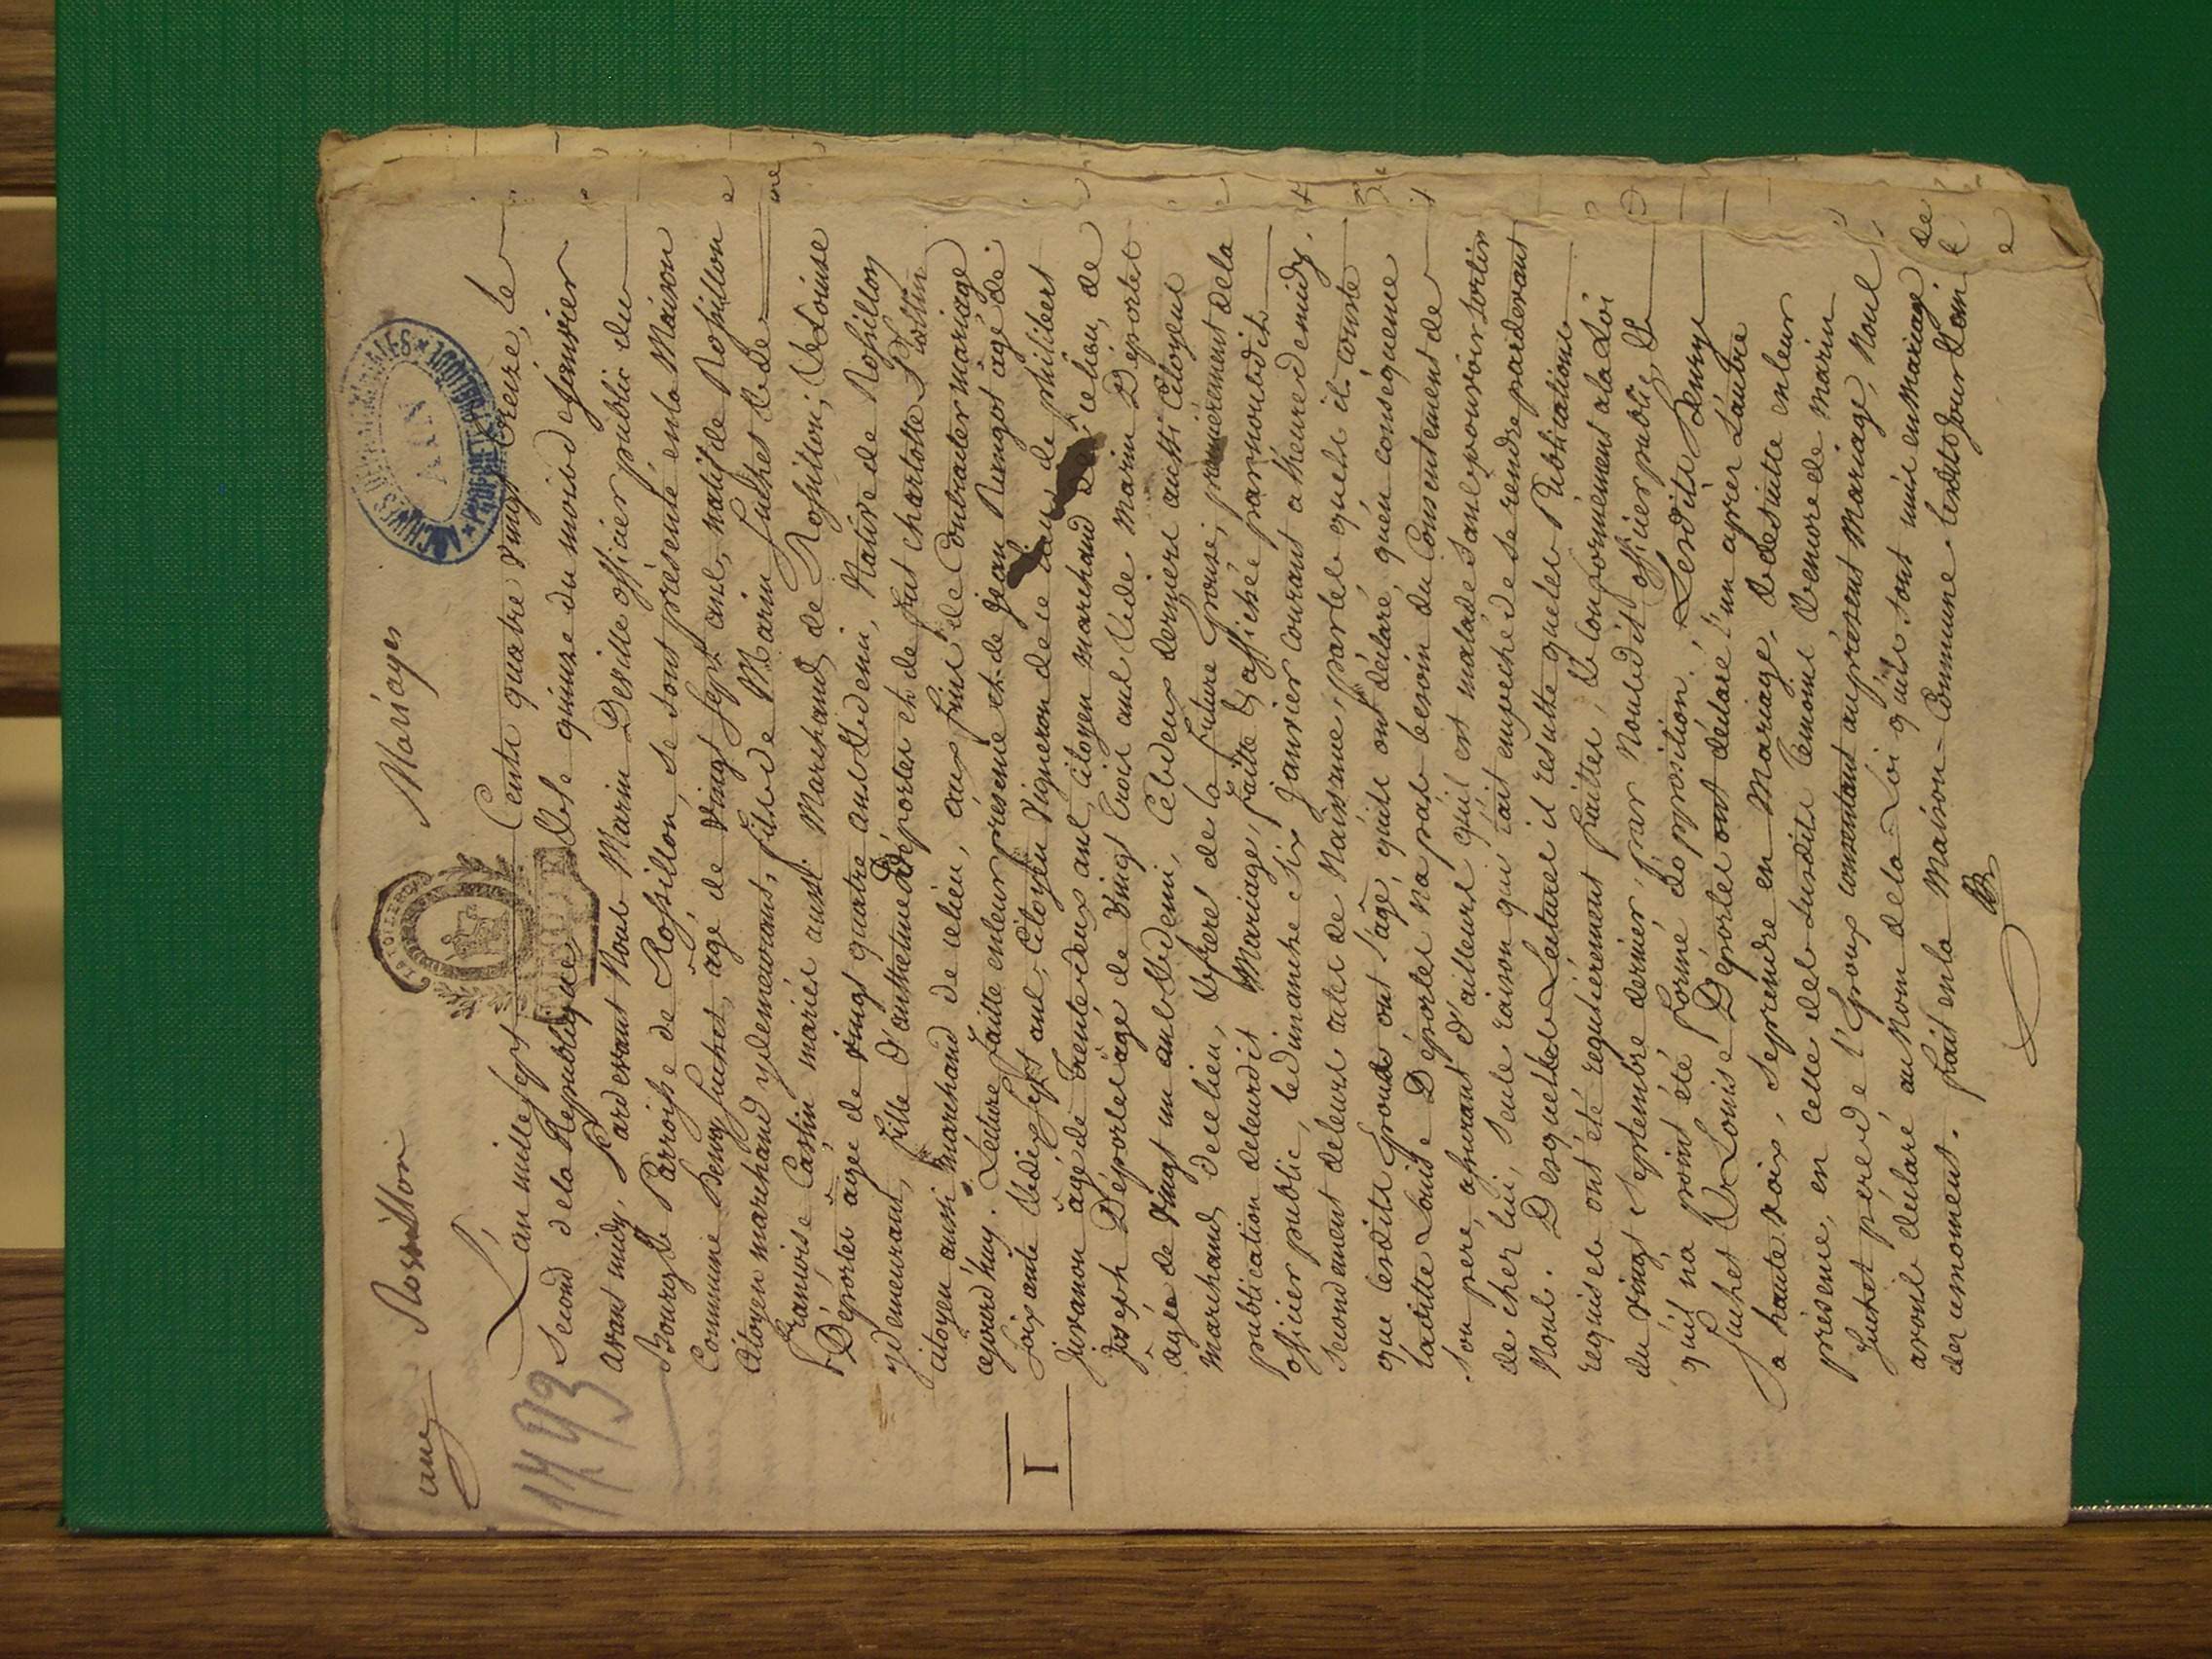 cure Rossillon Mariages
ARCHIVES DÉPARTEMENTALES
AIN
PROPRIÉTÉ PUBLIQUE
1793
L'an mille sept Cents quatre vingt treize, le
Second dela Republique & le quinze du mois de Janvier
avant midy, Pardevant Nous Marin Desille officier public du
Bourg & Parroisse de Rossillon, se sont présenté en la Maison
Commune Benoy Juthet, agé de vingt sept ans, natif de Rossillon
Citoyen marchand y demeurant, fils de Marin Juthet & de
Francoise Castin mariés aussi Marchands de Rossillon, & Louise
Déportes âgée de vingt quatre ans & demi, Native de Rossillon
y demeurant, fille d'Anthelme Déportes et de fut Charlotte Plattin
citoyen aussi marchand de ce lieu, aux fins de Contracter mariage
ajourd'huy. Lecture faitte en leur presence et de jean agé de
soixante & dix sept ans, Citoyen Vigneron de ce lieu de philibert
Juvanon âgé de trente deux ans, Citoyen marchand de ce lieu, de
Joseph Déportes âgé de vingt trois ans & de Marin Déportes
agée de vingt un ans & demi, Ces deux derniers aussi Citoyens
marchands de ce lieu, & freres de la future Epouse, premierement de la
publication de leurdit Mariage, faitte & affichée par nousdit
officier public, le dimanche six Janvier Courant a heure de midy.
Secondement de leurs actes de Naissance, par les quels il conste
que lesdits Epoux ont l'age, quils ont déclaré, qu'en consequence
laditte Louise Déportes na pas besoin du Consentement de
son pere, assurant d'ailleurs qu'il est malade sans pouvoir sortir
de cher lui, seule raison qui l'ait empeché de se rendre pardevant
Nous. Desquelles Lectures il resulte que les Publications
requises ont été regulièrement faittes, & Conformément a la Loi
du vingt septembre dernier, par Nousdit officier public, &
qu'il na point été formé dopposition. Lesdits Benoy
Juthet & Louise Déportes ont déclaré l'un aprèr L'autre
a haute voix, se prendre en Mariage, & de suitte en leur
présence, en celle des susdits témoins & encore de Marin
Juthet père de l'Epoux consentant au présent Mariage, Nous
avons declaré au nom de la Loi qu'ils sont unis en mariage de
ce moment. fait en la Maison Commune lesdits jour & an
I